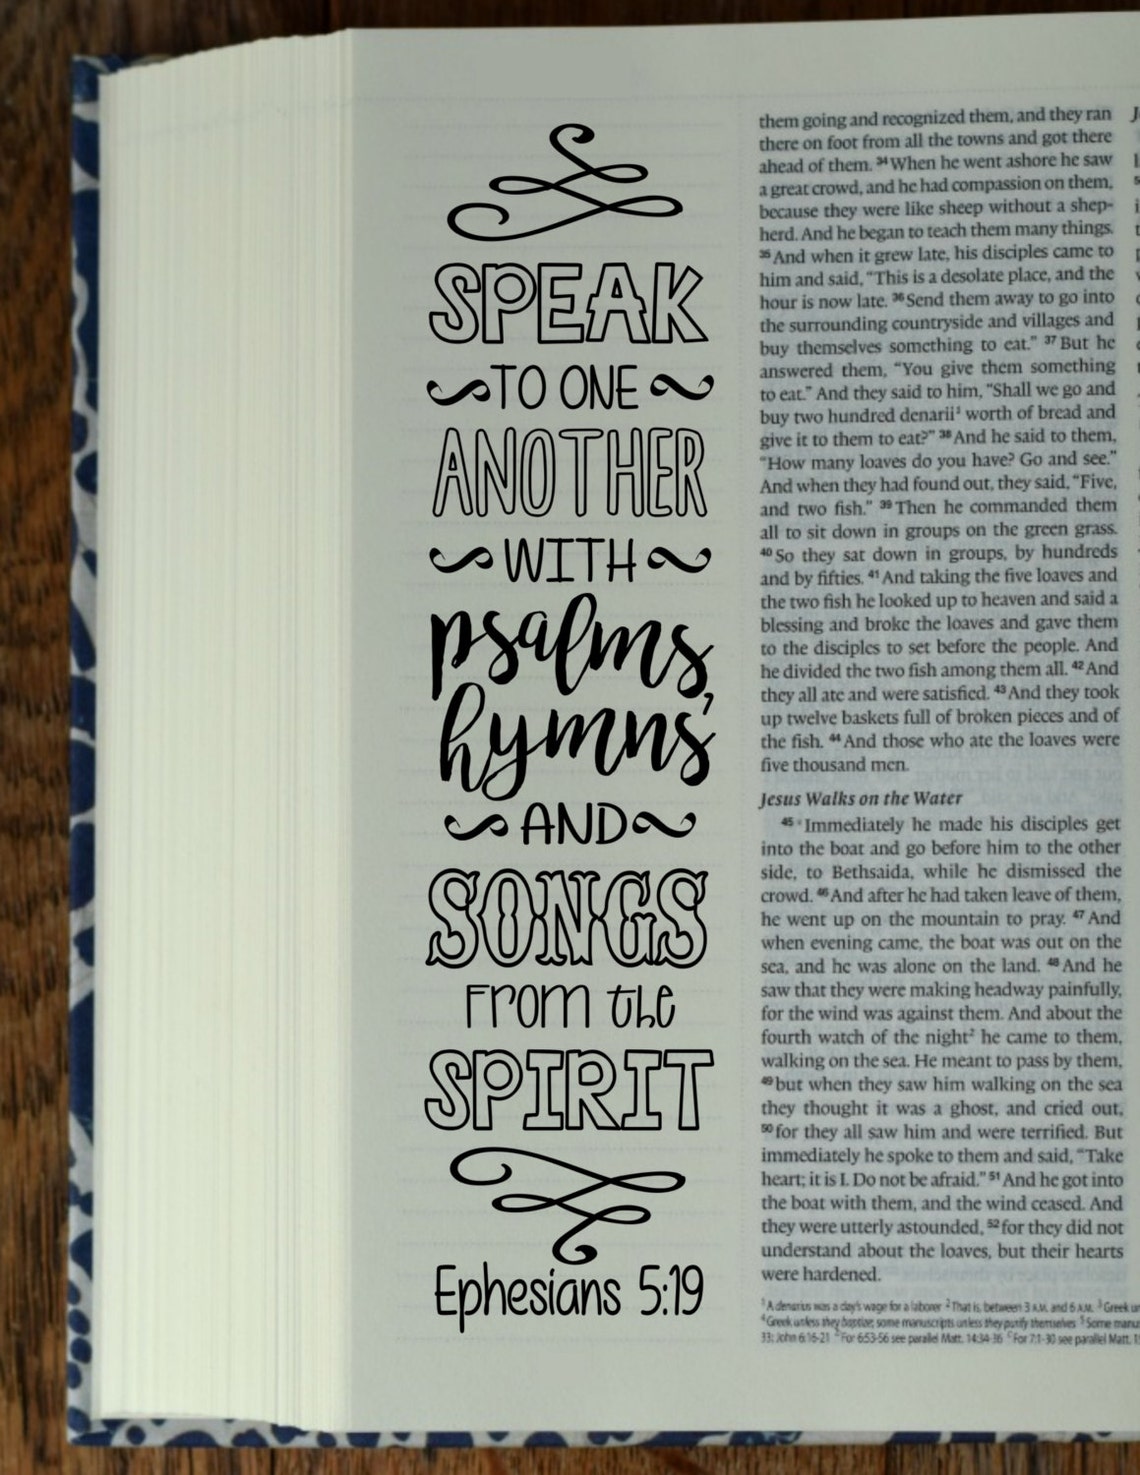 SPEAK
TO ONE
ANOTHER
WITH
psalms,
hymns,
AND
SONGS
From the
SPIRIT
Ephesians 5:19
them going and recognized them, and they ran
there on foot from all the towns and got there
ahead of them. 34 When he went ashore he saw
a great crowd, and he had compassion on them,
because they were like sheep without a shep-
herd. And he began to teach them many things.
35 And when it grew late, his disciples came to
him and said, “This is a desolate place, and the
hour is now late. 36 Send them away to go into
the surrounding countryside and villages and
buy themselves something to eat.” 37 But he
answered them, “You give them something
to eat.” And they said to him, “Shall we go and
buy two hundred denarii¹ worth of bread and
give it to them to eat?” 38 And he said to them,
“How many loaves do you have? Go and see.”
And when they had found out, they said, “Five,
and two fish.” 39 Then he commanded them
all to sit down in groups on the green grass.
40 So they sat down in groups, by hundreds
and by fifties. 41 And taking the five loaves and
the two fish he looked up to heaven and said a
blessing and broke the loaves and gave them
to the disciples to set before the people. And
he divided the two fish among them all. 42 And
they all ate and were satisfied. 43 And they took
up twelve baskets full of broken pieces and of
the fish. 44 And those who ate the loaves were
five thousand men.
Jesus Walks on the Water
45 Immediately he made his disciples get
into the boat and go before him to the other
side, to Bethsaida, while he dismissed the
crowd. 46 And after he had taken leave of them,
he went up on the mountain to pray. 47 And
when evening came, the boat was out on the
sea, and he was alone on the land. 48 And he
saw that they were making headway painfully,
for the wind was against them. And about the
fourth watch of the night² he came to them,
walking on the sea. He meant to pass by them,
49 but when they saw him walking on the sea
they thought it was a ghost, and cried out,
50 for they all saw him and were terrified. But
immediately he spoke to them and said, “Take
heart; it is I. Do not be afraid.” 51 And he got into
the boat with them, and the wind ceased. And
they were utterly astounded, 52 for they did not
understand about the loaves, but their hearts
were hardened.
¹ A denarius was a day's wage for a laborer ² That is, between 3 A.M. and 6 A.M. ³ Greek
⁴ Greek unless they baptize; some manuscripts unless they purify themselves ⁵ Some
33; John 6:16-21 For 6:53-56 see parallel Matt. 14:34-36 For 7:1-30 see parallel Matt.